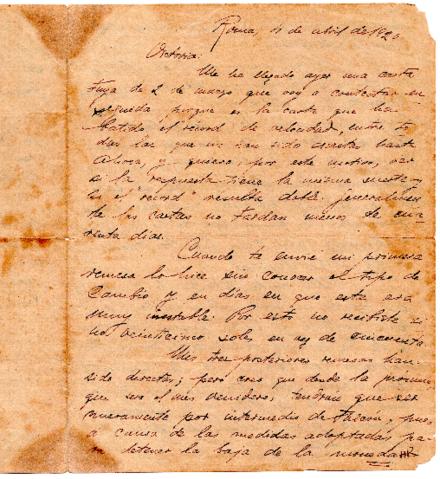 Roma, 4 de abril de 1920
Victoria:
Me ha llegado ayer una carta
tuya de 2 de marzo que voy a contestar en
seguida porque es la carta que ha
batido el record de velocidad, entre to
das las que me han sido escritas hasta
ahora, y quiero, por este motivo, ver
si la respuesta tiene la misma suerte y
si el "record" resulta doble. Jeneralmente
las cartas no tardan menos de cua
renta días.
Cuando te envié mi primera
remesa lo hice sin conocer el tipo de
cambio y en días en que este era
muy inestable. Por esto no recibiste si
no veinticinco soles en vez de cincuenta.
Mis tres posteriores remesas han
sido directas; pero creo que desde la próxima
que será el mes venidero, tendrán que ser
nuevamente por intermedio de pues
a causa de las medidas adoptadas pa
ra detener la baja de la moneda